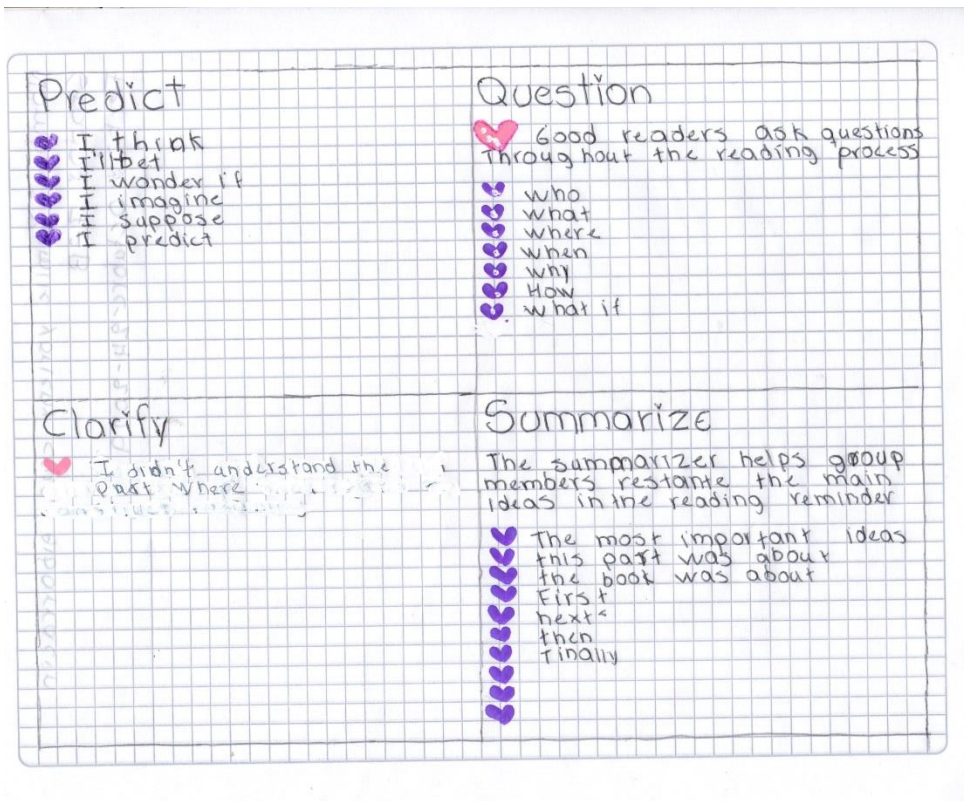 Predict
I think
I'll bet
I wonder if
I imagine
I suppose
I predict
Question
Good readers ask questions
Throughout the reading process
who
what
where
when
why
How
what if
Clarify
I didn't understand the
part where
Summarize
The summarizer helps group
members restante the main
ideas in the reading reminder
The most important ideas
this part was about
the book was about
First
next
then
Finally